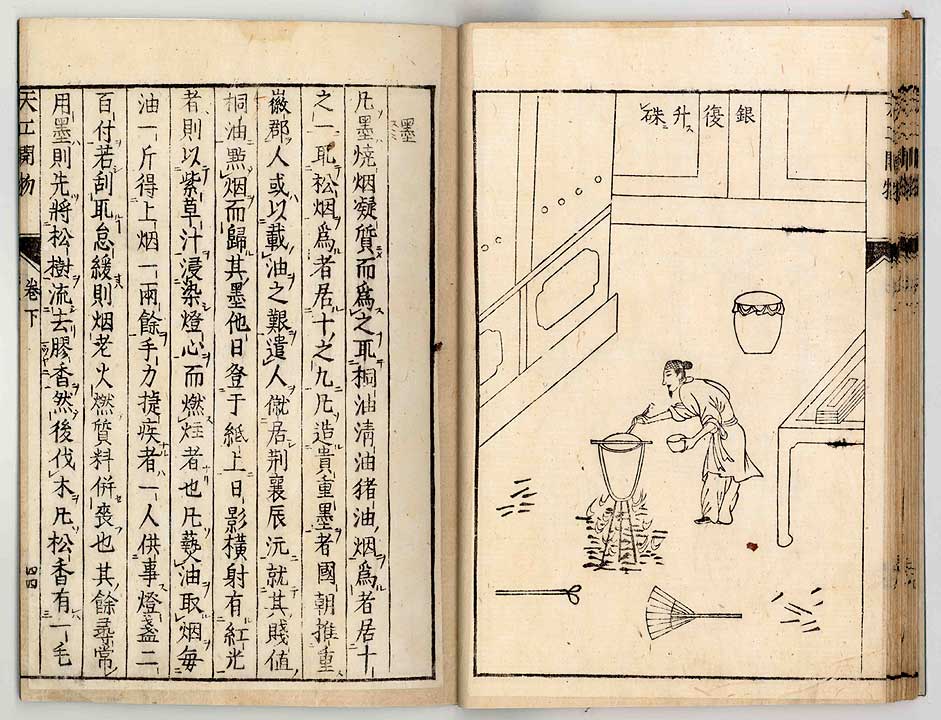 銀復升硃
墨
凡墨燒烟凝質而爲之耴桐油清油猪油烟爲者居十
之一耴松烟爲者居十之九凡造貴重墨者國朝推重
徽郡人或以載油之艱遣人僦居荆襄辰沅就其賤值
桐油點烟而歸其墨他日登于紙上日影橫射有紅光
者則以紫草汁浸染燈心而燃炷者也凡爇油取烟每
油一斤得上烟一兩餘手力捷疾者一人供事燈盞二
百付若刮耴怠緩則烟老火燃質料併喪也其餘尋常
用墨則先將松樹流去膠香然後伐木凡松香有一毛
天工開物 卷下 四四